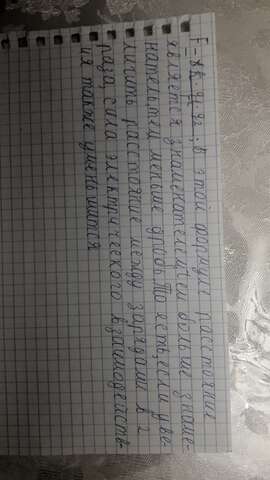 F = k q₁ q₂; В этой формуле расстояние
является знаменателем. Чем больше знаме-
натель, тем меньше дробь. То есть, если уве-
личить расстояние между зарядами в 2
раза, сила электрического взаимодейств-
ия также уменьшится